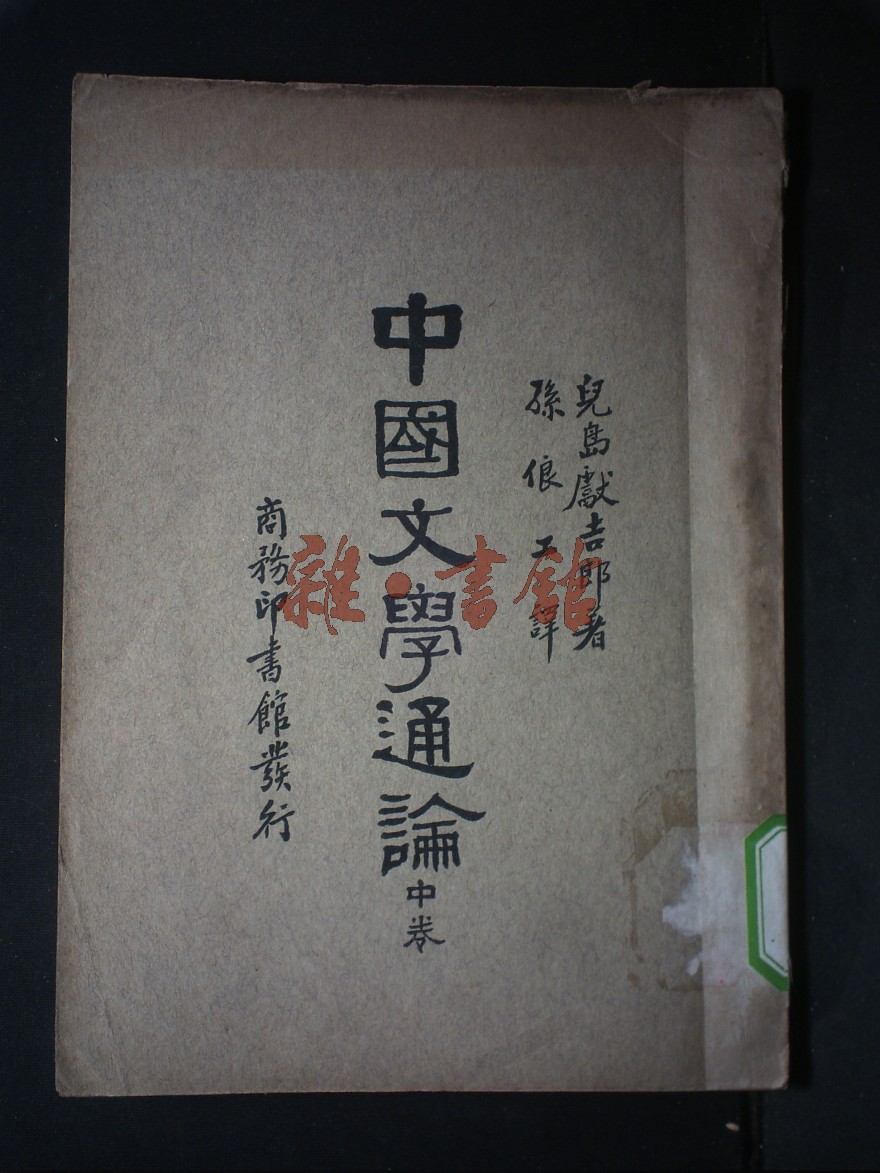 兒島獻吉郎著
孫俍工譯
中國文學通論
中卷
商務印書館發行
雜·書館